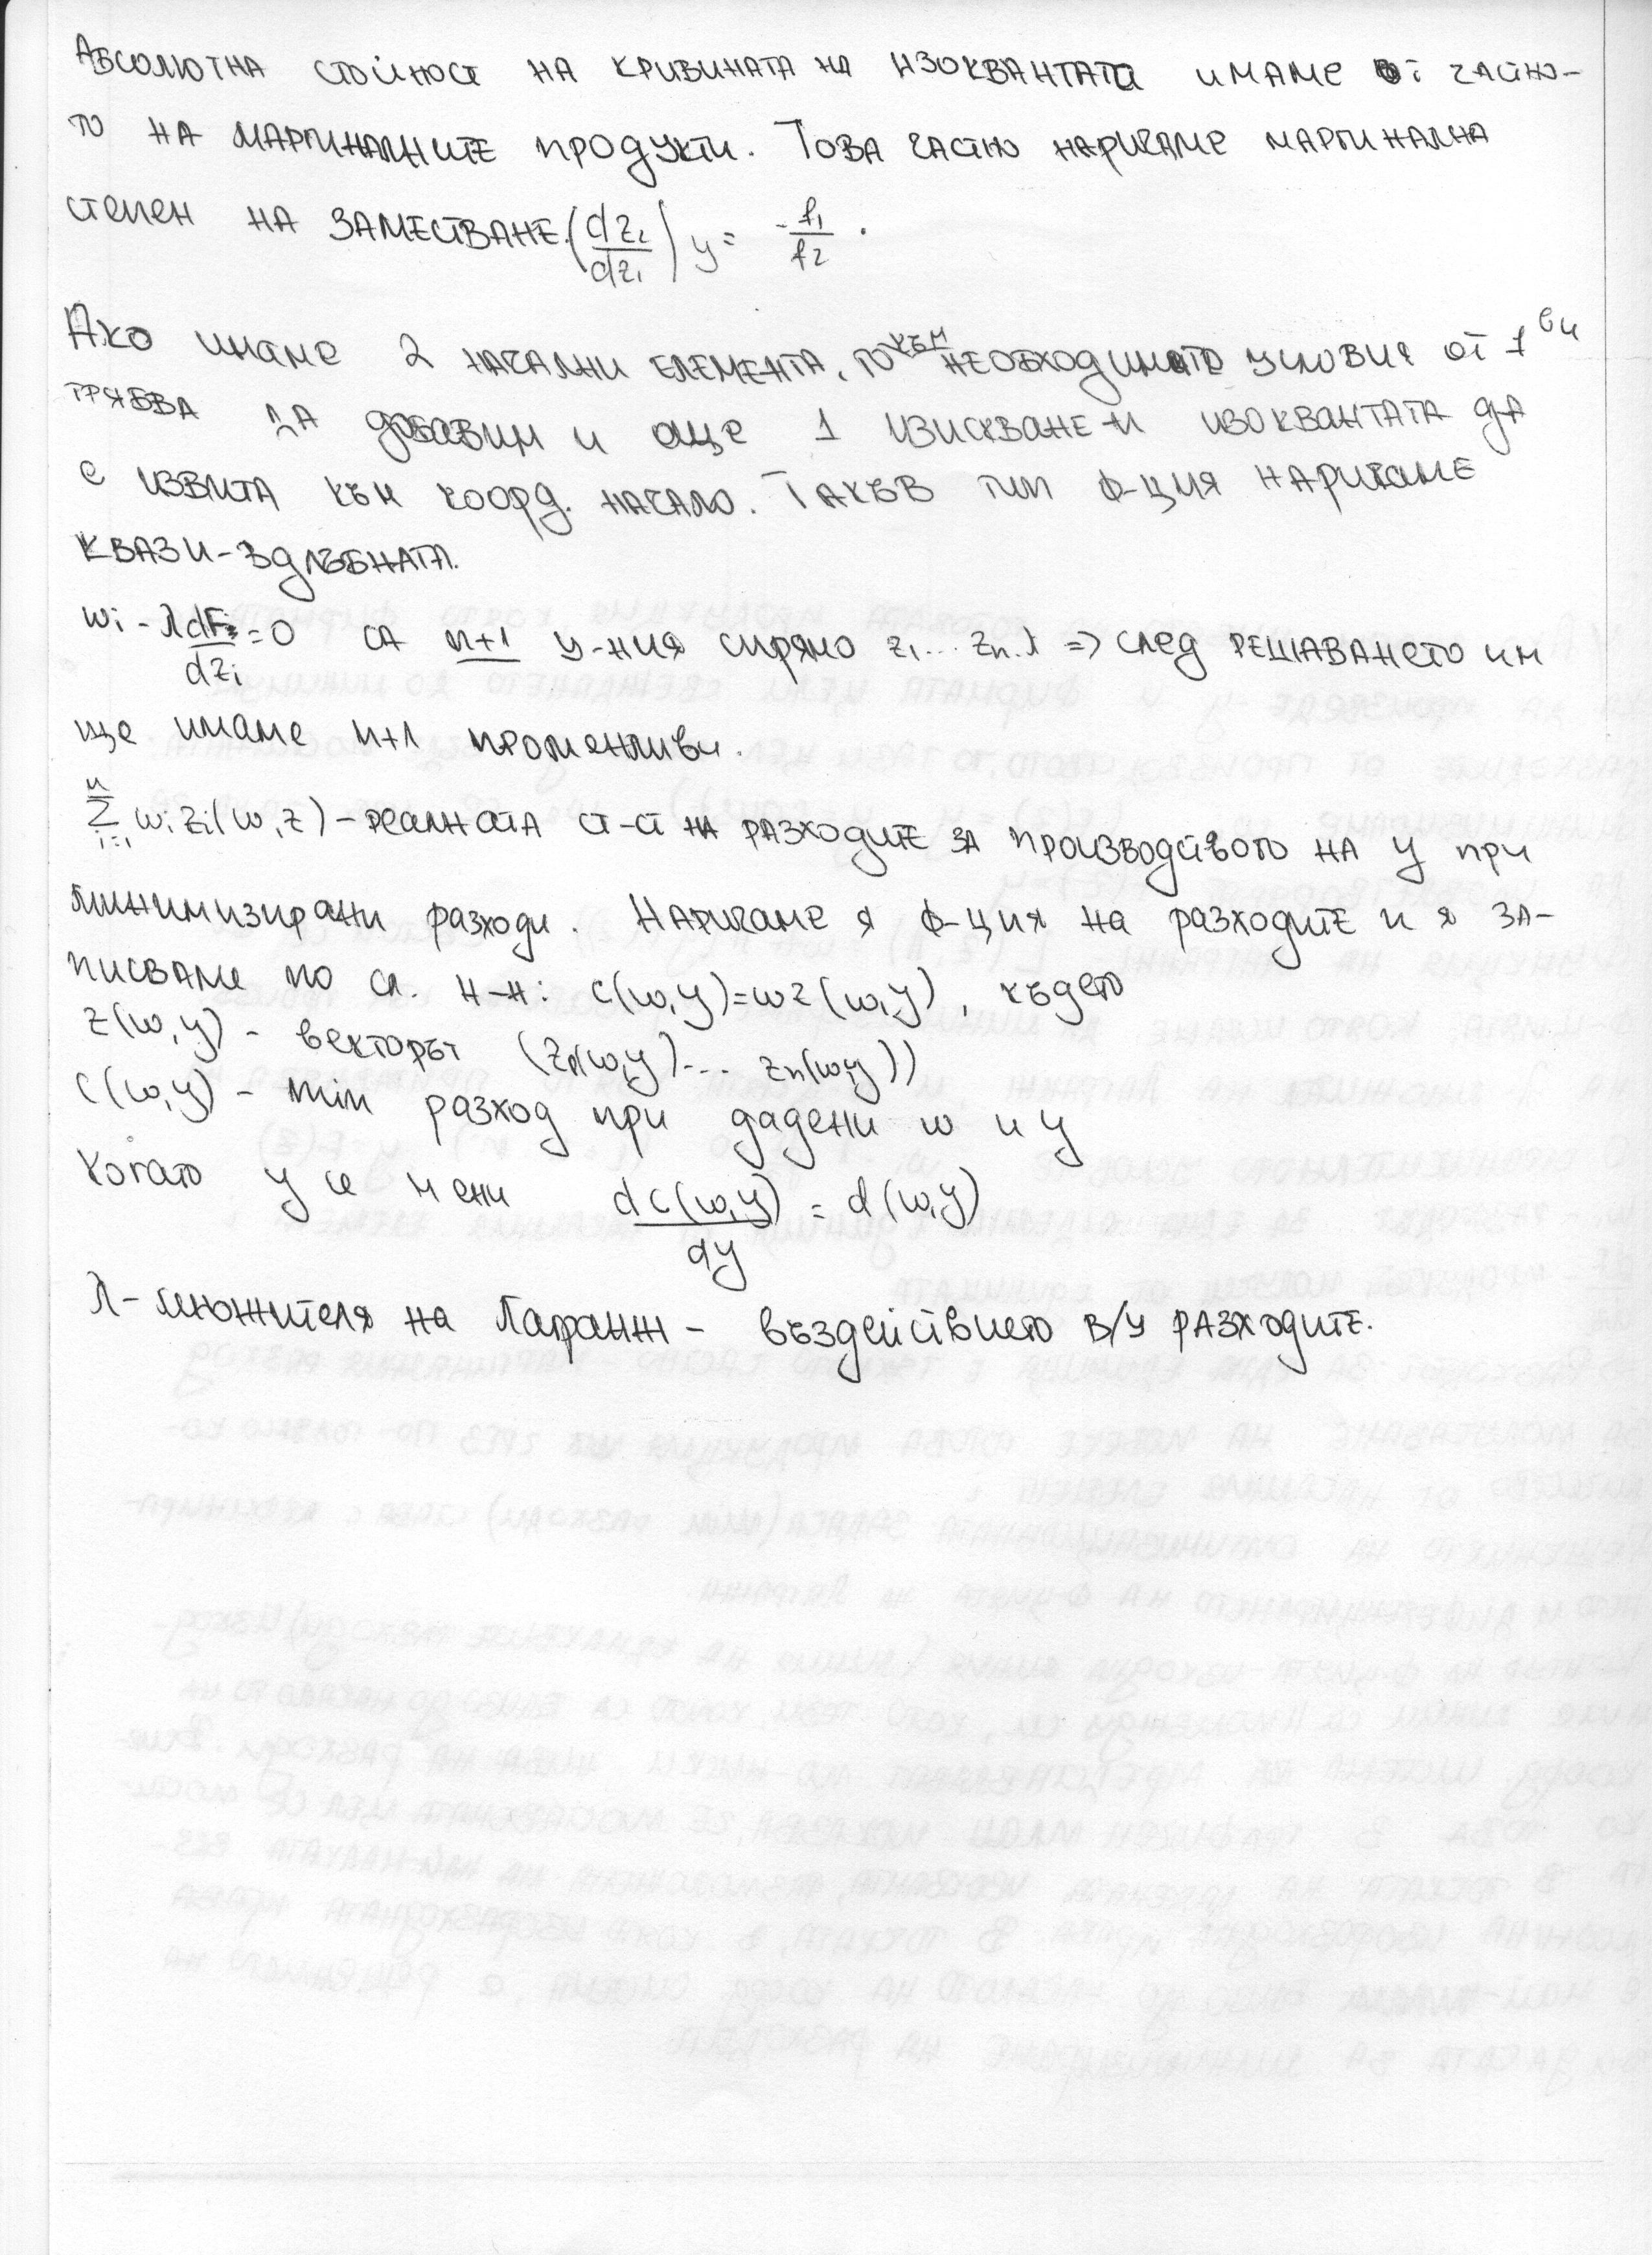 Абсолютна стойност на кривината на изоквантата имаме от частно-
то на маргиналните продукти. Това частно наричаме маргинална
степен на заместване. (dz₂/dz₁) y = -f₁/f₂.
Ако имаме 2 начални елемента, то към необходимите условия от 1ви
трябва да добавим и още 1 изискване - и изоквантата да
е извита към коорд. начало. Такъв тип ф-ция наричаме
квази-вдлъбната.
wi - λ dF/dzi = 0 са n+1 у-ния спрямо z₁... zn. λ => след решаването им
ще имаме n+1 променливи.
n Σ i=1 wi zi(w,z) - реалната ст-ст на разходите за производството на y при
минимизирани разходи. Наричаме я ф-ция на разходите и я за-
писваме по сл. н-н: c(w,y)=wz(w,y), където
z(w,y) - векторът (z₁(w,y)... zn(w,y))
c(w,y) - min разход при дадени w и y
Когато y се мени dc(w,y)/dy = λ(w,y)
λ - множителя на Лагранж - въздействието в/у разходите.